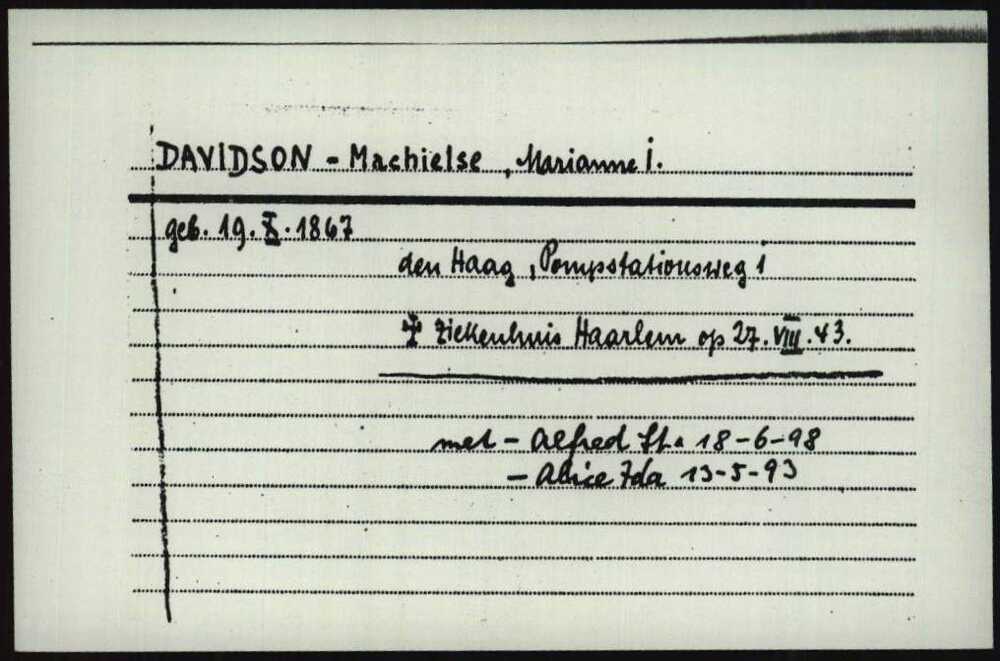 DAVIDSON - Machielse, Marianne I.
geb. 19. X. 1867
den Haag, Pompstationsweg 1
✝ Ziekenhuis Haarlem op 27. VIII. 43.
met - Alfred St. 18-6-98
- Alice Ida 13-5-93